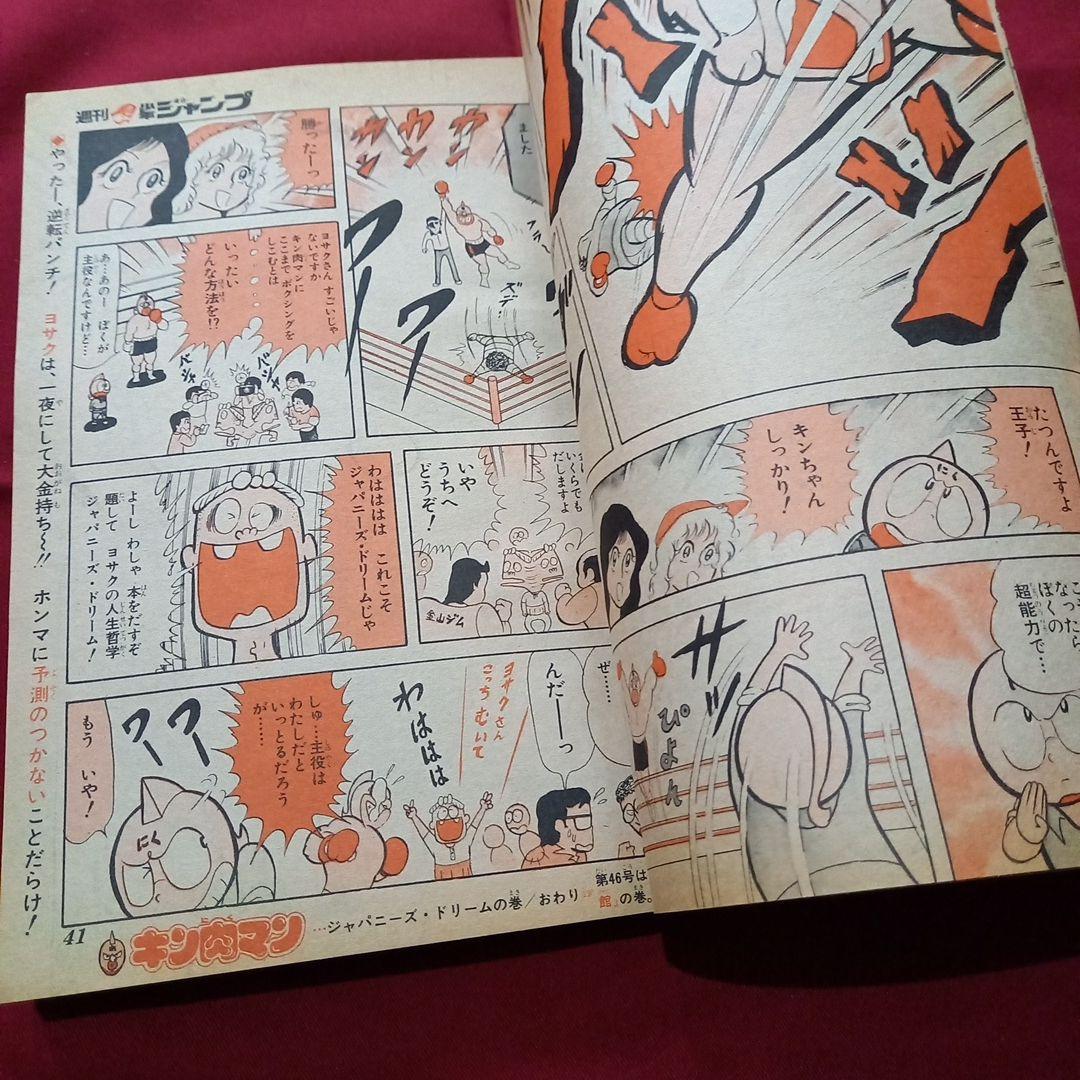 週刊少年ジャンプ
たつんですよ
王子!
キンちゃん
しっかり!
こったら
なったら
ぼくの
超能力で…
ザッ
ぴょん
ました
ウィンウィンウィン
フラ
ズデーッ
ワー
ワー
勝ったーっ
ヨサクさん すごいじゃ
ないですか
キン肉マンに
ここまで ボクシングを
しこむとは
いったい
どんな方法を!?
あ…あのー ぼくが
主役なんですけど…
バシャ
バシャ
いくらでも
だしますよ
いや
うちへ
どうぞ!
金山ジム
わはははは これこそ
ジャパニーズ・ドリームじゃ
よーし わしゃ 本をだすぞ
題して ヨサクの人生哲学
ジャパニーズ・ドリーム!
ぜ……
んだーーっ
ヨサクさん
こっちむいて
わははは
しゅ…主役は
わたしだと
いっとるだろう
が……
ワー
ワー
にく
もう いや!
◆やったー、逆転パンチ! ヨサクは、一夜にして大金持ち〜!! ホンマに予測のつかないことだらけ!
41
キン肉マン
…ジャパニーズ・ドリームの巻/おわり
第46号は
館』の巻。